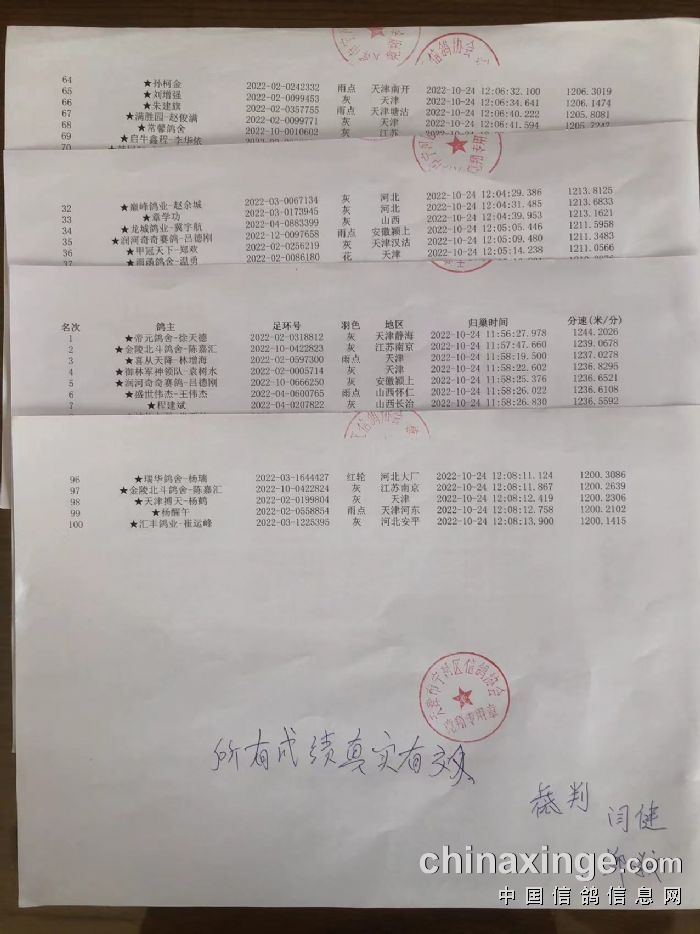 信鸽协会
64 ★孙柯金 2022-02-0242332 雨点 天津南开 2022-10-24 12:06:32.100 1206.3019
65 ★刘增强 2022-02-0099453 灰 天津 2022-10-24 12:06:34.641 1206.1474
66 ★朱建旗 2022-02-0357755 雨点 天津塘沽 2022-10-24 12:06:40.222 1205.8081
67 ★满胜园-赵俊满 2022-02-0099771 灰 天津 2022-10-24 12:06:41.594 1205.7242
68 ★常馨鸽舍 2022-10-0010602 灰 江苏
69 ★启牛鑫程-李华依
70
32 ★巅峰鸽业-赵余城 2022-03-0067134 灰 河北 2022-10-24 12:04:29.386 1213.8125
33 ★章学功 2022-03-0173945 灰 河北 2022-10-24 12:04:31.485 1213.6833
34 ★龙城鸽业-冀宇航 2022-04-0883399 灰 山西 2022-10-24 12:04:39.953 1213.1621
35 ★润河奇奇赛鸽-吕德刚 2022-12-0097658 雨点 安徽颍上 2022-10-24 12:05:05.446 1211.5958
36 ★甲冠天下-郑欢 2022-02-0256219 灰 天津汉沽 2022-10-24 12:05:09.480 1211.3483
37 ★雨函鸽舍-温勇 2022-02-0086180 花 天津 2022-10-24 12:05:14.238 1211.0566
名次 鸽主 足环号 羽色 地区 归巢时间 分速(米/分)
1 ★帝元鸽舍-徐天德 2022-02-0318812 灰 天津静海 2022-10-24 11:56:27.978 1244.2026
2 ★金陵北斗鸽舍-陈嘉汇 2022-10-0422823 灰 江苏南京 2022-10-24 11:57:47.660 1239.0678
3 ★喜从天降-林增海 2022-02-0597300 雨点 天津 2022-10-24 11:58:19.500 1237.0278
4 ★御林军神领队-袁树水 2022-02-0005714 灰 天津 2022-10-24 11:58:22.602 1236.8295
5 ★润河奇奇赛鸽-吕德刚 2022-10-0666250 灰 安徽颍上 2022-10-24 11:58:25.376 1236.6521
6 ★盛世伟杰-王伟杰 2022-04-0600765 雨点 山西怀仁 2022-10-24 11:58:26.022 1236.6108
7 ★程建斌 2022-04-0207822 灰 山西长治 2022-10-24 11:58:26.830 1236.5592
96 ★瑞华鸽舍-杨瑞 2022-03-1644427 红轮 河北大厂 2022-10-24 12:08:11.124 1200.3086
97 ★金陵北斗鸽舍-陈嘉汇 2022-10-0422824 灰 江苏南京 2022-10-24 12:08:11.867 1200.2639
98 ★天津搏天-杨鹤 2022-02-0199804 灰 天津 2022-10-24 12:08:12.419 1200.2306
99 ★杨醒午 2022-02-0558854 雨点 天津河东 2022-10-24 12:08:12.758 1200.2102
100 ★汇丰鸽业-崔运峰 2022-03-1225395 灰 河北安平 2022-10-24 12:08:13.900 1200.1415
天津市宁河区信鸽协会
竞翔专用章
所有成绩真实有效
裁判 闫健
chinaxinge.com
中国信鸽信息网